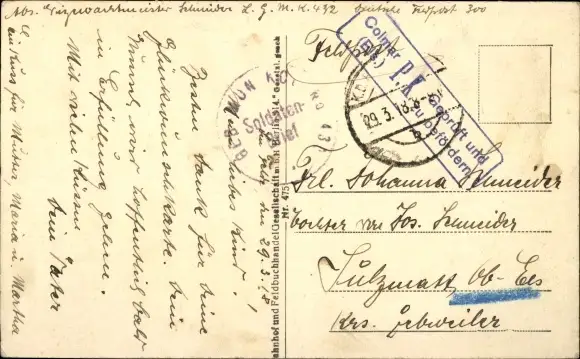 Abs. Vizewachtmeister Schneider L. G. M. K. 432 Deutsche Feldpost 300
Feldpost
Colmar
(Els.)
P.K.
Geprüft und
zu befördern
29.3.18.
BER. MUN. KOL.
NO 431
Soldaten-
Brief
Im Felde den 29.3.18
Liebes Kind!
Besten Dank für Deine
Glückwunschkarte. Dein
Wunsch wird hoffentlich bald
in Erfüllung gehen.
Mit vielen Küssen
Dein Vater
ein Kuss für Mutter, Maria u. Martha
Bahnhof und Feldbuchhandel Gesellschaft mbH Berlin
Nr. 4751
Frl. Johanna Schneider
Tochter von Jos. Schneider
Sulzmatt Ob-Els
Krs. Gebweiler